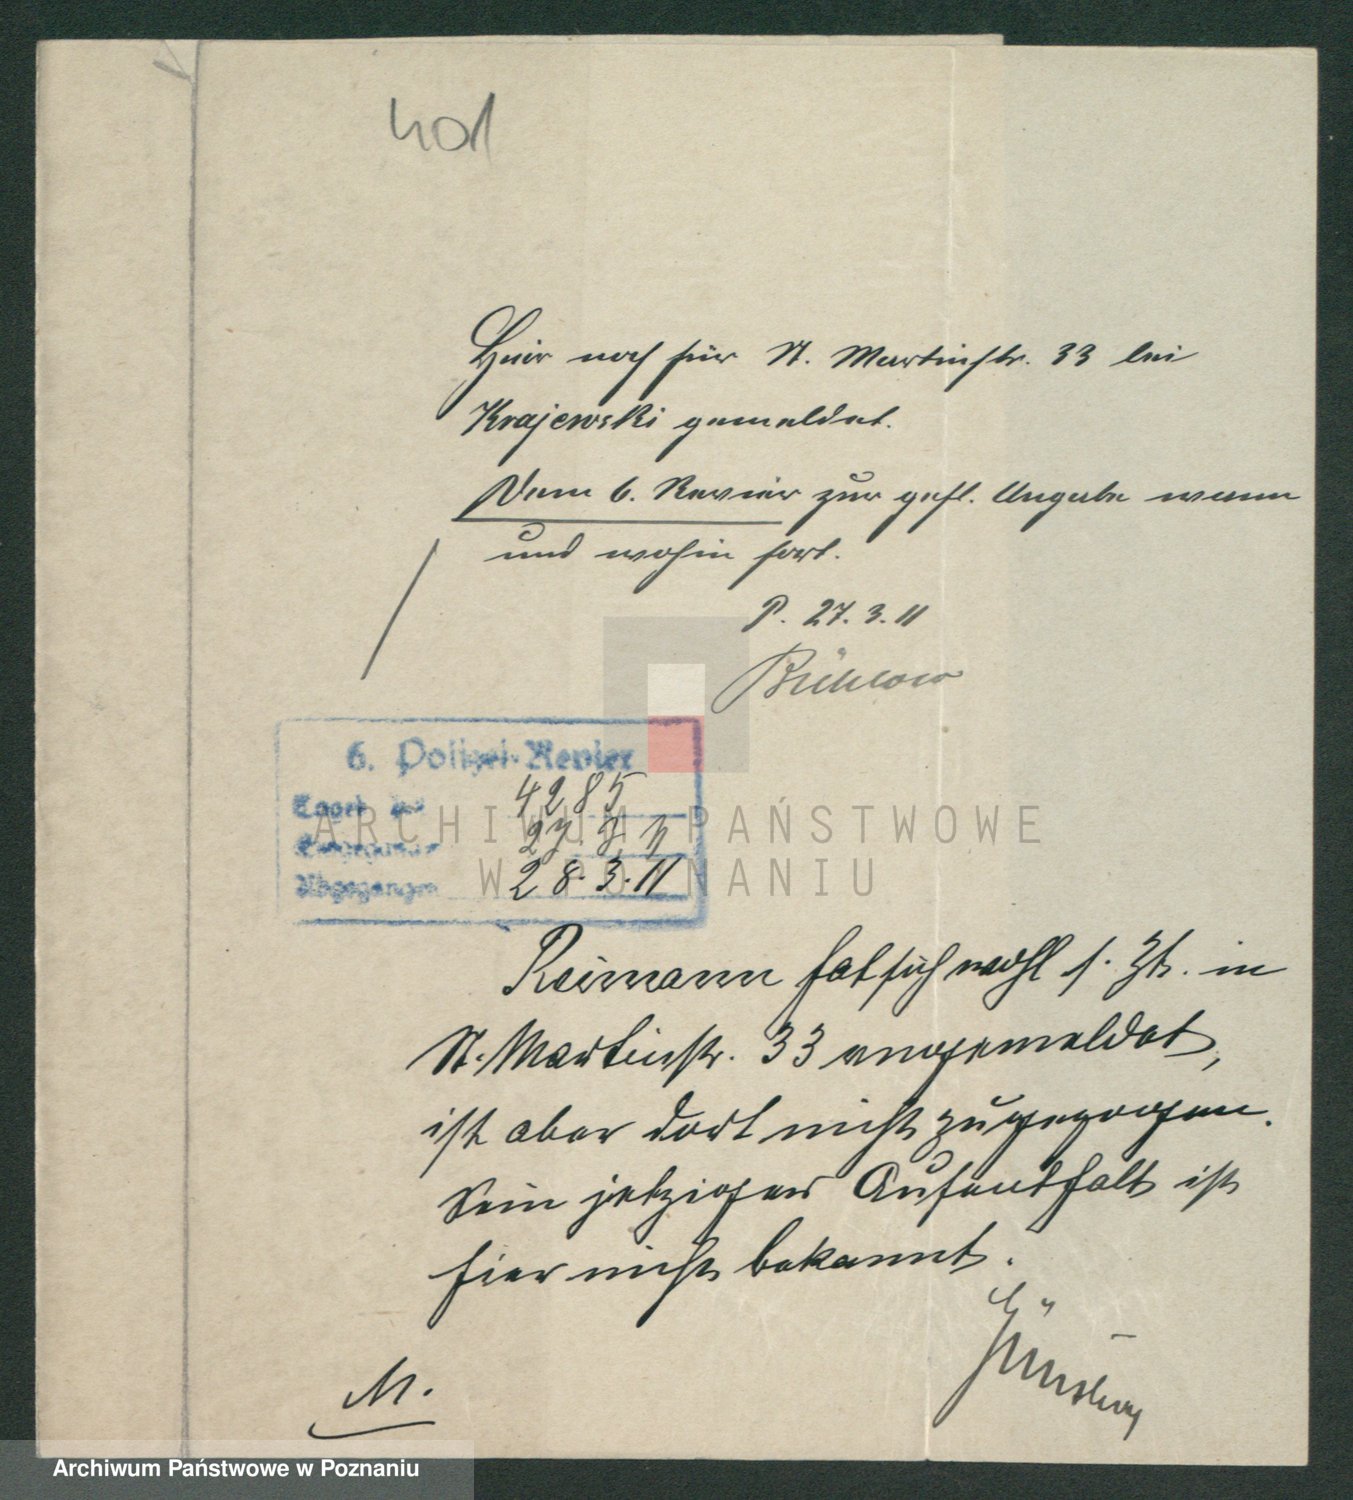 401
Hier noch für St. Martinstr. 33 bei
Krajewski gemeldet.
Dem 6. Revier zur gefl. Angabe wann
und wohin fort.
P. 27.3.11
6. Polizei-Revier
4285
27. 3. 11
Abgegangen 28.3.11
ARCHIWUM PAŃSTWOWE
W POZNANIU
Reimann hat sich wohl s. Zt. in
St. Martinstr. 33 angemeldet,
ist aber dort nicht zugezogen.
Sein jetziger Aufenthalt ist
hier nicht bekannt.
M.
Archiwum Państwowe w Poznaniu